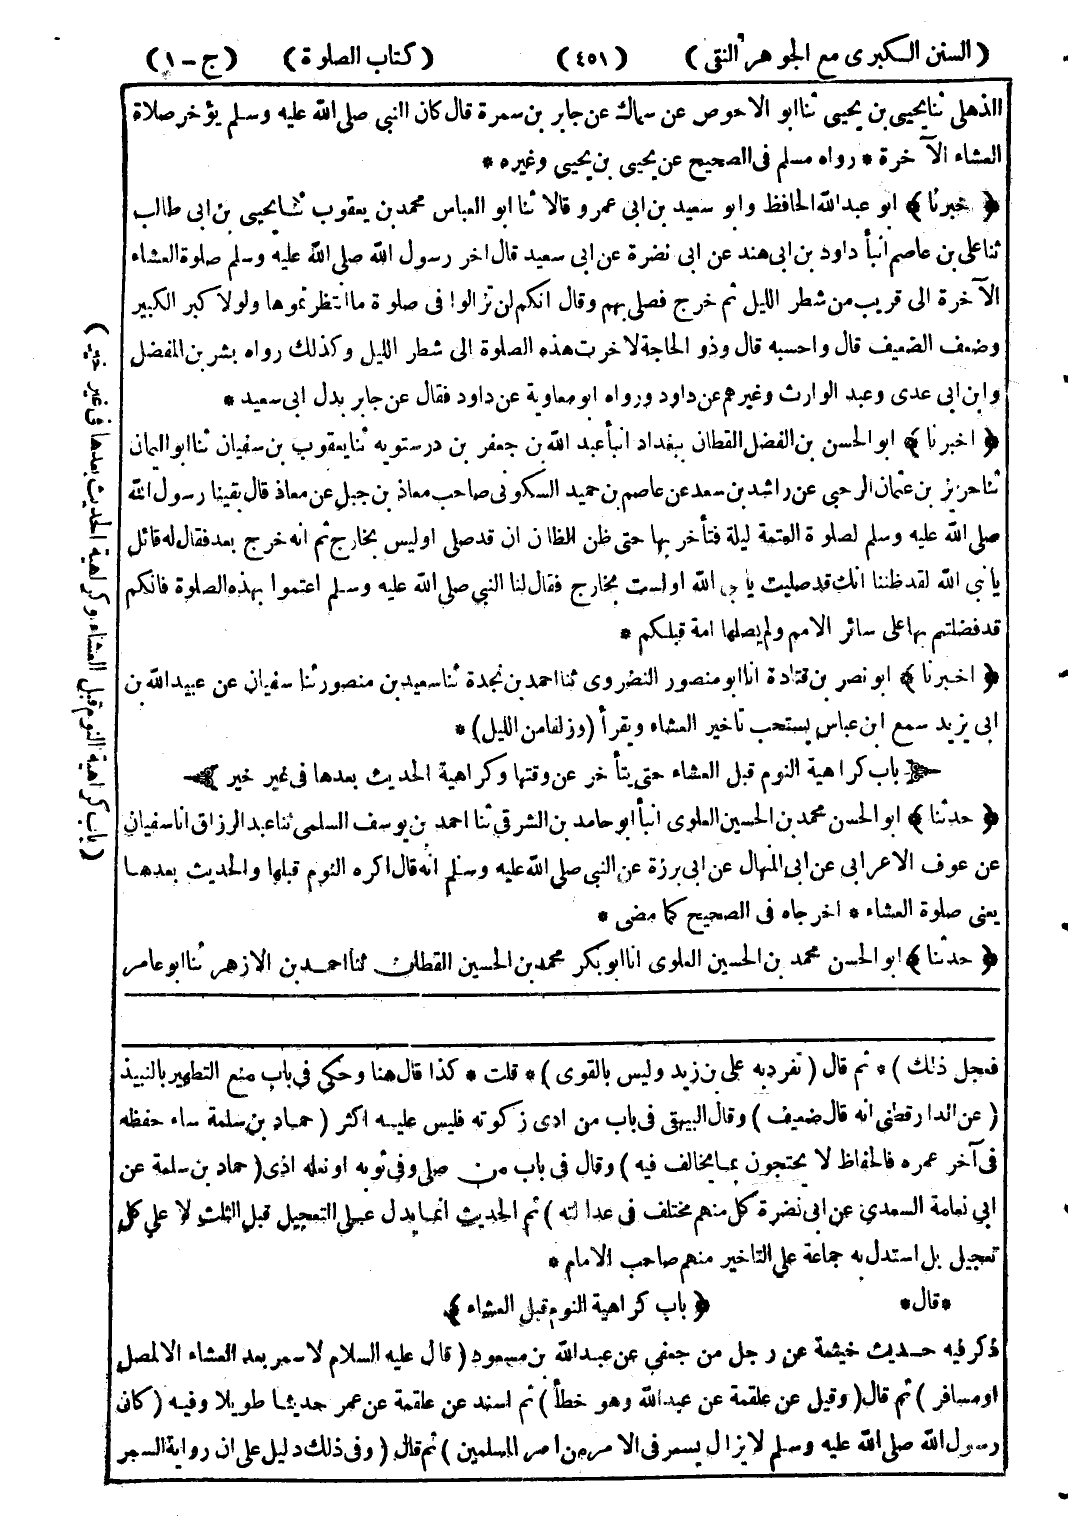 (السنن الكبرى مع الجوهر النقى) (٤٥١) (كتاب الصلوة) (ج-١)
الذهلى ثنا يحيى بن يحيى ثنا ابو الاحوص عن سماك عن جابر بن سمرة قال كان النبى صلى الله عليه وسلم يؤخر صلاة
العشاء الآخرة * رواه مسلم فى الصحيح عن يحيى بن يحيى وغيره *
﴿ خبرنا ﴾ ابو عبدالله الحافظ وابو سعيد بن ابى عمرو قالا ثنا ابو العباس محمد بن يعقوب ثنا يحيى بن ابى طالب
ثنا على بن عاصم انبأ داود بن ابى هند عن ابى نضرة عن ابى سعيد قال اخر رسول الله صلى الله عليه وسلم صلوة العشاء
الآخرة الى قريب من شطر الليل ثم خرج فصلى بهم وقال انكم لن تزالوا فى صلوة ما انتظرتموها ولولا كبر الكبير
وضعف الضعيف قال واحسبه قال وذو الحاجة لاخرت هذه الصلوة الى شطر الليل وكذلك رواه بشر بن المفضل
وابن ابى عدى وعبد الوارث وغيرهم عن داود ورواه ابو معاوية عن داود فقال عن جابر بدل ابى سعيد *
﴿ اخبرنا ﴾ ابو الحسن بن الفضل القطان ببغداد انبأ عبد الله بن جعفر بن درستويه ثنا يعقوب بن سفيان ثنا ابو اليمان
ثنا حريز بن عثمان الرحبى عن راشد بن سعد عن عاصم بن حميد السكونى صاحب معاذ بن جبل عن معاذ قال بقينا رسول الله
صلى الله عليه وسلم لصلوة العتمة ليلة فتأخر بها حتى ظن الظان ان قد صلى او ليس بخارج ثم انه خرج بعد فقال له قائل
يا نبى الله لقد ظننا انك قد صليت يا نبى الله او لست بخارج فقال لنا النبى صلى الله عليه وسلم اعتموا بهذه الصلوة فانكم
قد فضلتم بها على سائر الامم ولم يصلها امة قبلكم *
﴿ اخبرنا ﴾ ابو نصر بن قتادة انا ابو منصور النضروى ثنا احمد بن نجدة ثنا سعيد بن منصور ثنا سفيان عن عبيد الله بن
ابى يزيد سمع ابن عباس يستحب تاخير العشاء ويقرأ (وزلفا من الليل) *
باب كراهية النوم قبل العشاء حتى يتأخر عن وقتها وكراهية الحديث بعدها فى غير خير
﴿ حدثنا ﴾ ابو الحسن محمد بن الحسين العلوى انبأ ابو حامد بن الشرقى ثنا احمد بن يوسف السلمى ثنا عبد الرزاق انا سفيان
عن عوف الاعرابى عن ابى المنهال عن ابى برزة عن النبى صلى الله عليه وسلم انه قال اكره النوم قبلها والحديث بعدها
يعنى صلوة العشاء * اخرجاه فى الصحيح كما مضى *
﴿ حدثنا ﴾ ابو الحسن محمد بن الحسين العلوى انا ابوبكر محمد بن الحسين القطان ثنا احمد بن الازهر ثنا ابو عامر
(باب كراهية النوم قبل العشاء وكراهية الحديث بعدها فى غير خير)
فجعل ذلك) * ثم قال (تفرد به على بن زيد وليس بالقوى) * قلت * كذا قال هنا وحكى فى باب منع التطهير بالنبيذ
(عن الدارقطنى انه قال ضعيف) وقال البيهقى فى باب من ادى زكوته فليس عليه اكثر (حماد بن سلمة ساء حفظه
فى آخر عمره فالحفاظ لا يحتجون بما يخالف فيه) وقال فى باب من صلى وفى ثوبه او نعله اذى (حماد بن سلمة عن
ابى نعامة السعدى عن ابى نضرة كل منهم مختلف فى عدالته) ثم الحديث انما يدل على التعجيل قبل الثلث لا على كل
تعجيل بل استدل به جماعة على التاخير منهم صاحب الامام *
*قال* ﴿ باب كراهية النوم قبل العشاء ﴾
ذكر فيه حديث خيثمة عن رجل من جعفى عن عبدالله بن مسعود (قال عليه السلام لا سمر بعد العشاء الا لمصل
او مسافر) ثم قال (وقيل عن علقمة عن عبدالله وهو خطأ) ثم اسند عن علقمة عن عمر حديثا طويلا وفيه (كان
رسول الله صلى الله عليه وسلم لا يزال يسمر فى الامر من امر المسلمين) ثم قال (وفى ذلك دليل على ان رواية السمر